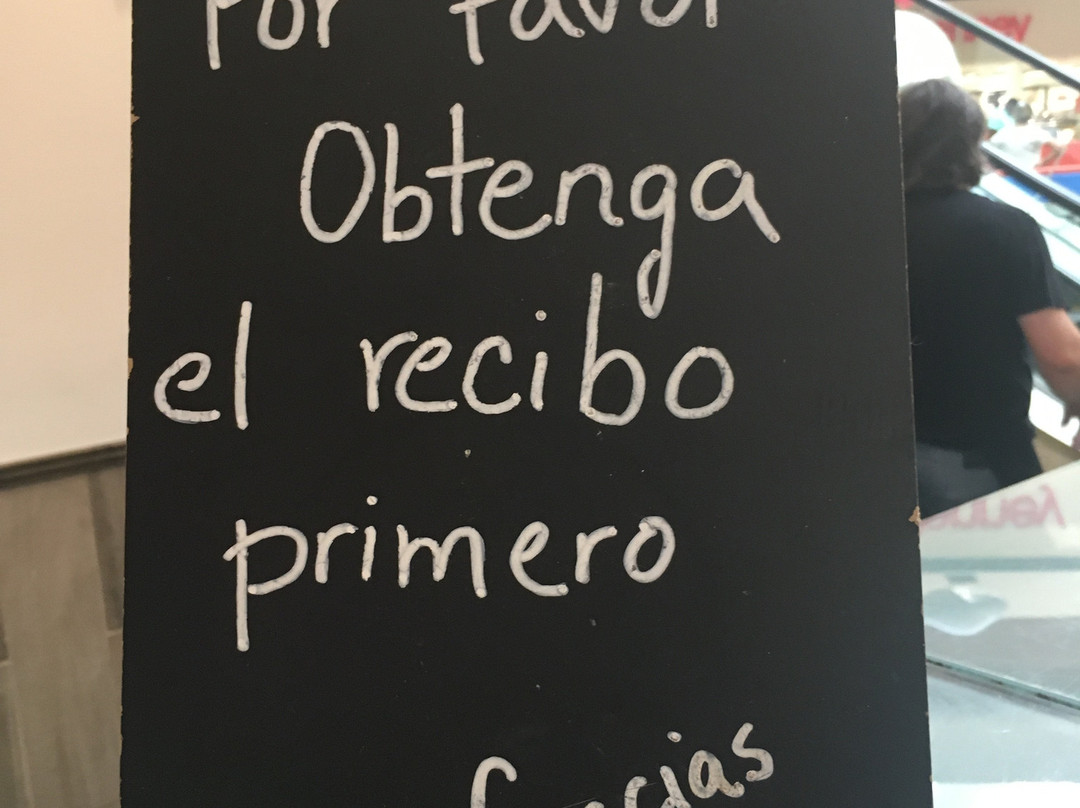 Por favor
Obtenga
el recibo
primero
Gracias